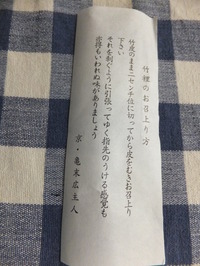 竹裡のお召上り方
竹皮のまま二センチ位に切ってから皮をむきお召上り
下さい
それを剥ぐように引張ってゆく指先のうける感覚も
窓得もいわれぬ味がありましょう
京・亀末広主人